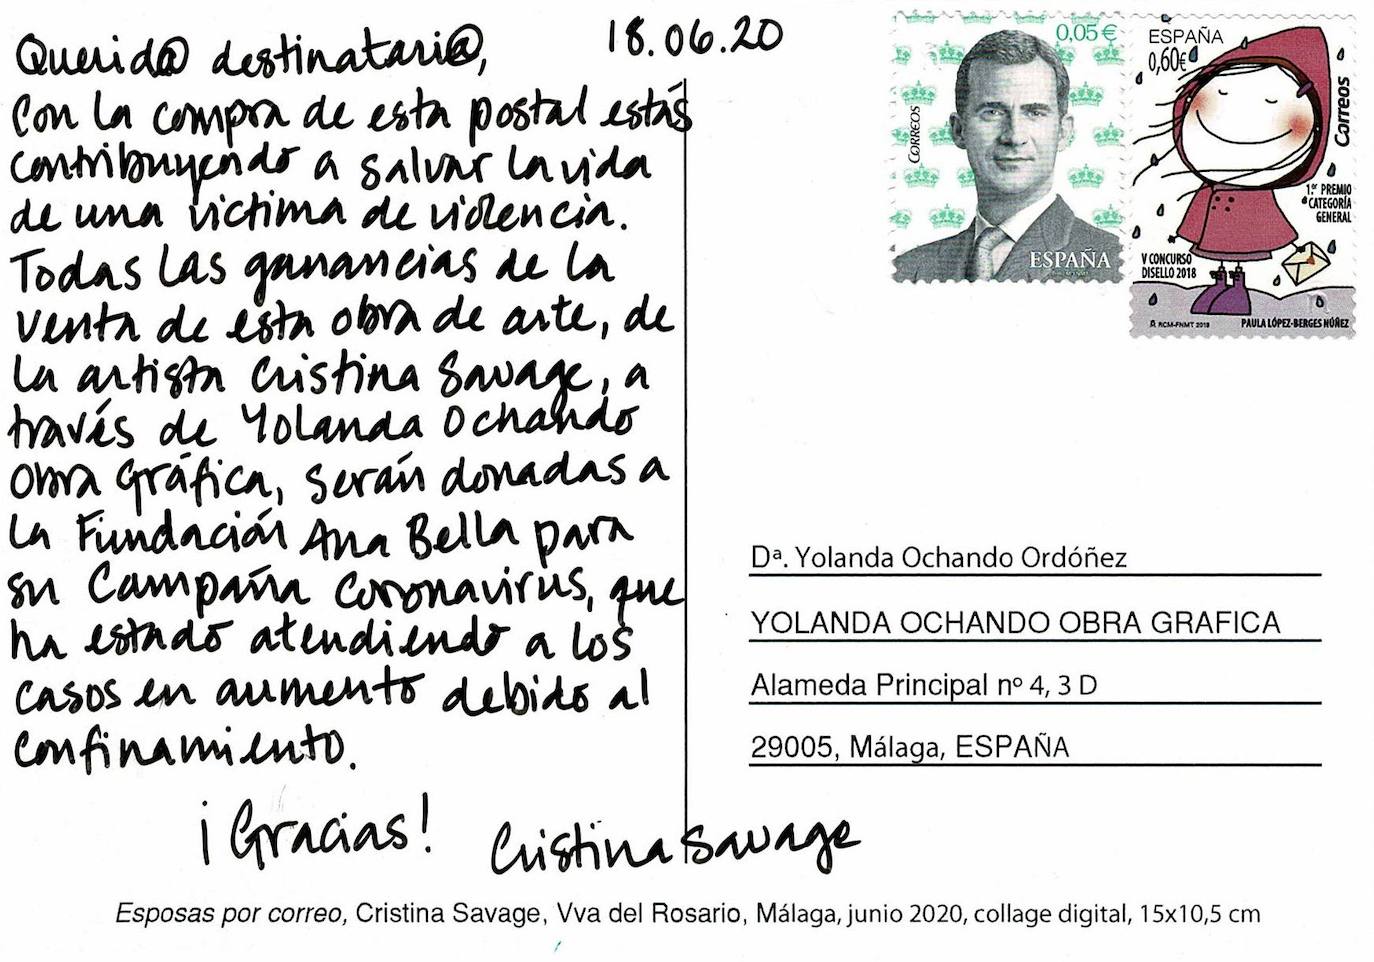 18.06.20
Querid@ destinatari@,
Con la compra de esta postal estás
contribuyendo a salvar la vida
de una víctima de violencia.
Todas las ganancias de la
venta de esta obra de arte, de
la artista Cristina Savage, a
través de Yolanda Ochando
Obra Gráfica, serán donadas a
la Fundación Ana Bella para
su Campaña Coronavirus, que
ha estado atendiendo a los
casos en aumento debido al
confinamiento.
¡Gracias!
Cristina Savage
CORREOS
0,05€
ESPAÑA
ESPAÑA
0,60€
Correos
1.er PREMIO
CATEGORÍA
GENERAL
V CONCURSO
DISELLO 2018
RCM-FNMT 2018
PAULA LÓPEZ-BERGES NÚÑEZ
Dª. Yolanda Ochando Ordóñez
YOLANDA OCHANDO OBRA GRAFICA
Alameda Principal nº 4, 3 D
29005, Málaga, ESPAÑA
Esposas por correo, Cristina Savage, Vva del Rosario, Málaga, junio 2020, collage digital, 15x10,5 cm